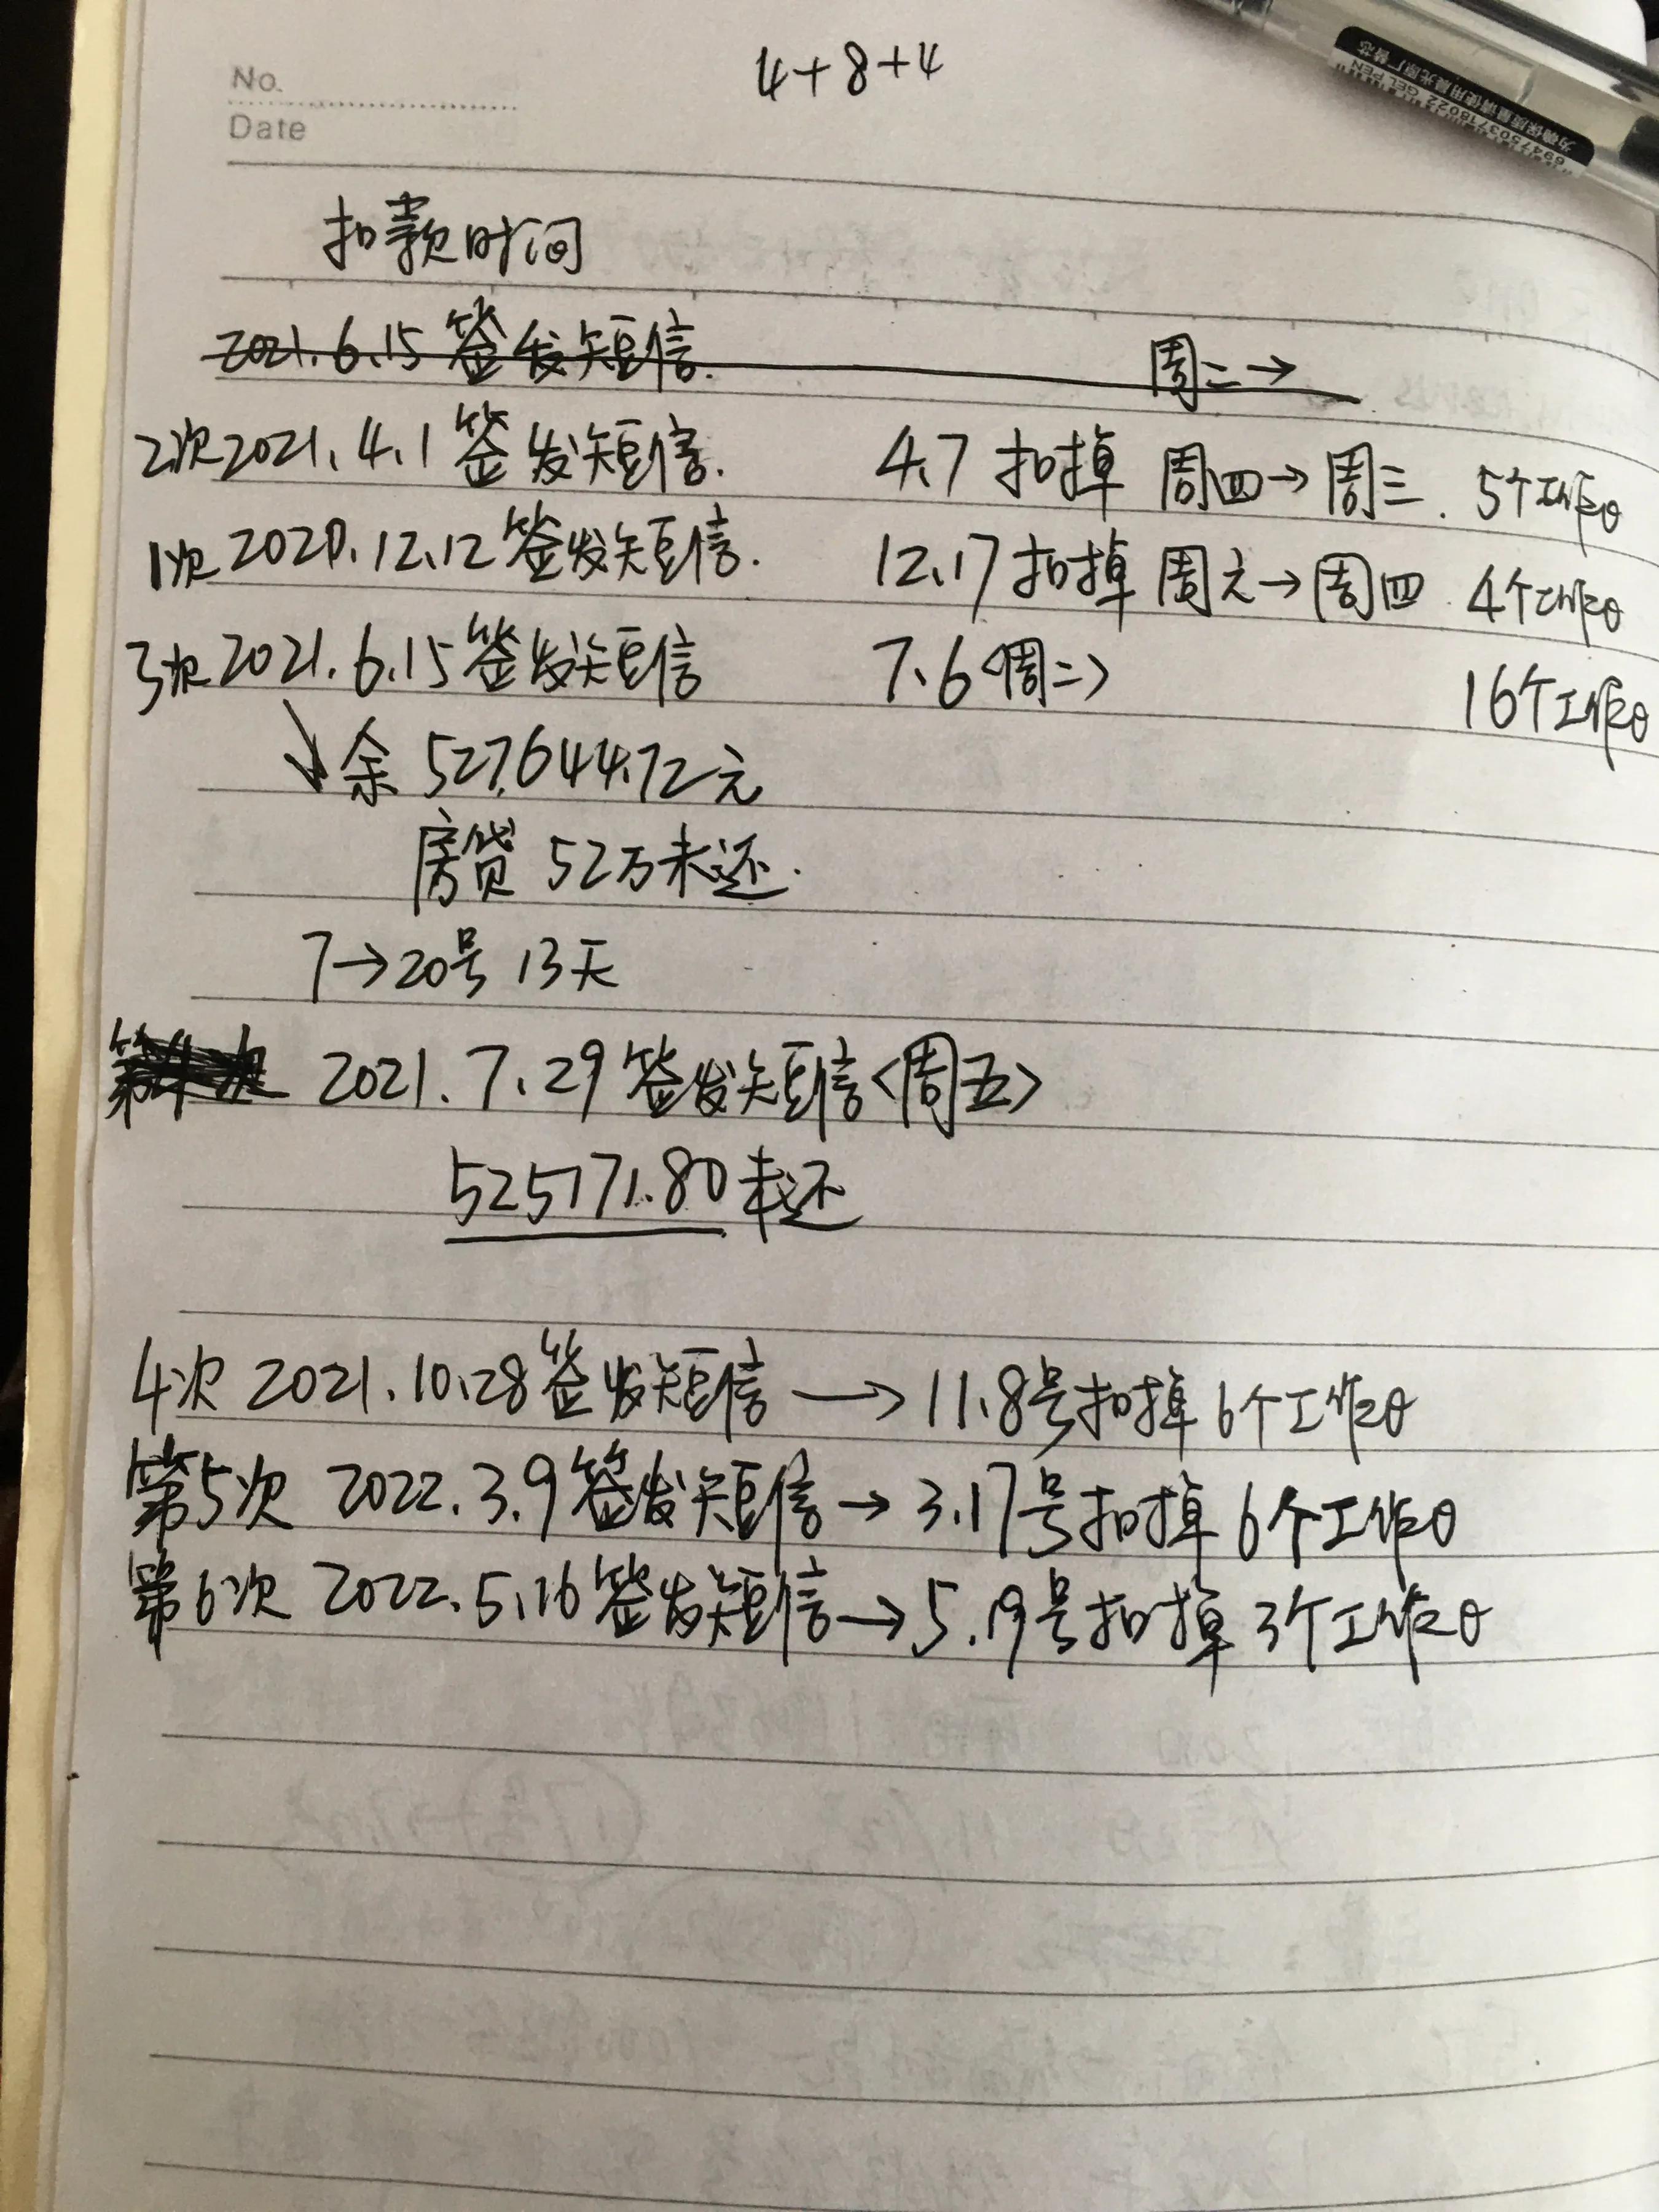 4+8+4
为确保质量请使用晨光原厂替芯
No.
Date
扣款时间
2021.6.15 签发短信. 周二→
2次2021.4.1 签发短信. 4.7 扣掉 周四→周三. 5个工作日
1次 2020.12.12 签发短信. 12.17 扣掉 周六→周四 4个工作日
3次 2021.6.15 签发短信 7.6<周二> 16个工作日
↘余 527,644.72元
房贷 52万未还.
7→20号 13天
2021.7.29 签发短信<周五>
525171.80 未还
4次 2021.10.28 签发短信 → 11.8号扣掉 6个工作日
第5次 2022.3.9 签发短信 → 3.17号扣掉 6个工作日
第6次 2022.5.16 签发短信→5.19号扣掉 3个工作日